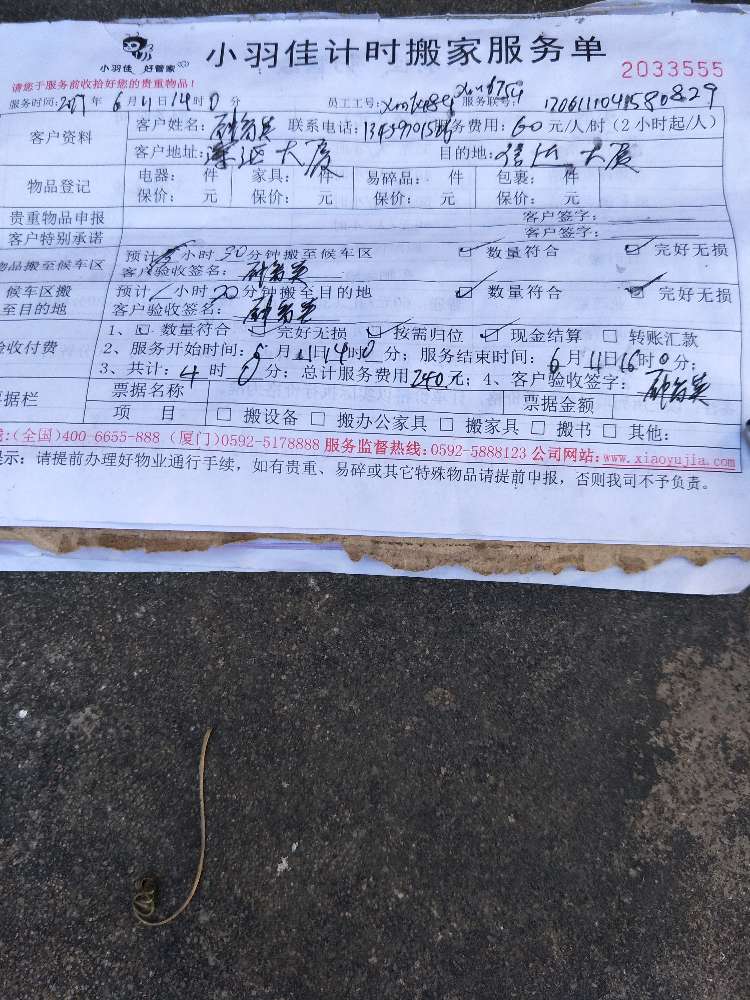 小羽佳 好管家
小羽佳计时搬家服务单
2033555
请您于服务前收拾好您的贵重物品！
服务时间: 年 6 月 11 日 14 时 0 分 员工工号: 服务联号: 1706111041580829
客户资料
客户姓名: 联系电话: 服务费用: 60 元/人/时（2 小时起/人）
客户地址: 大厦 目的地: 大厦
物品登记
电器: 件 家具: 件 易碎品: 件 包裹: 件
保价: 元 保价: 元 保价: 元 保价: 元
贵重物品申报 客户签字:
客户特别承诺 客户签字:
物品搬至候车区
预计 小时 30 分钟搬至候车区 数量符合 完好无损
客户验收签名:
候车区搬
至目的地
预计 小时 20 分钟搬至目的地 数量符合 完好无损
客户验收签名:
验收付费
1、 数量符合 完好无损 按需归位 现金结算 转账汇款
2、服务开始时间: 6 月 11 日 14 时 0 分; 服务结束时间: 6 月 11 日 16 时 0 分;
3、共计: 4 时 0 分; 总计服务费用 240 元; 4、客户验收签字:
据栏
票据名称 票据金额
项 目 搬设备 搬办公家具 搬家具 搬书 其他:
线:(全国)400-6655-888 (厦门)0592-5178888 服务监督热线:0592-5888123 公司网站:www.xiaoyujia.com
示: 请提前办理好物业通行手续，如有贵重、易碎或其它特殊物品请提前申报，否则我司不予负责。